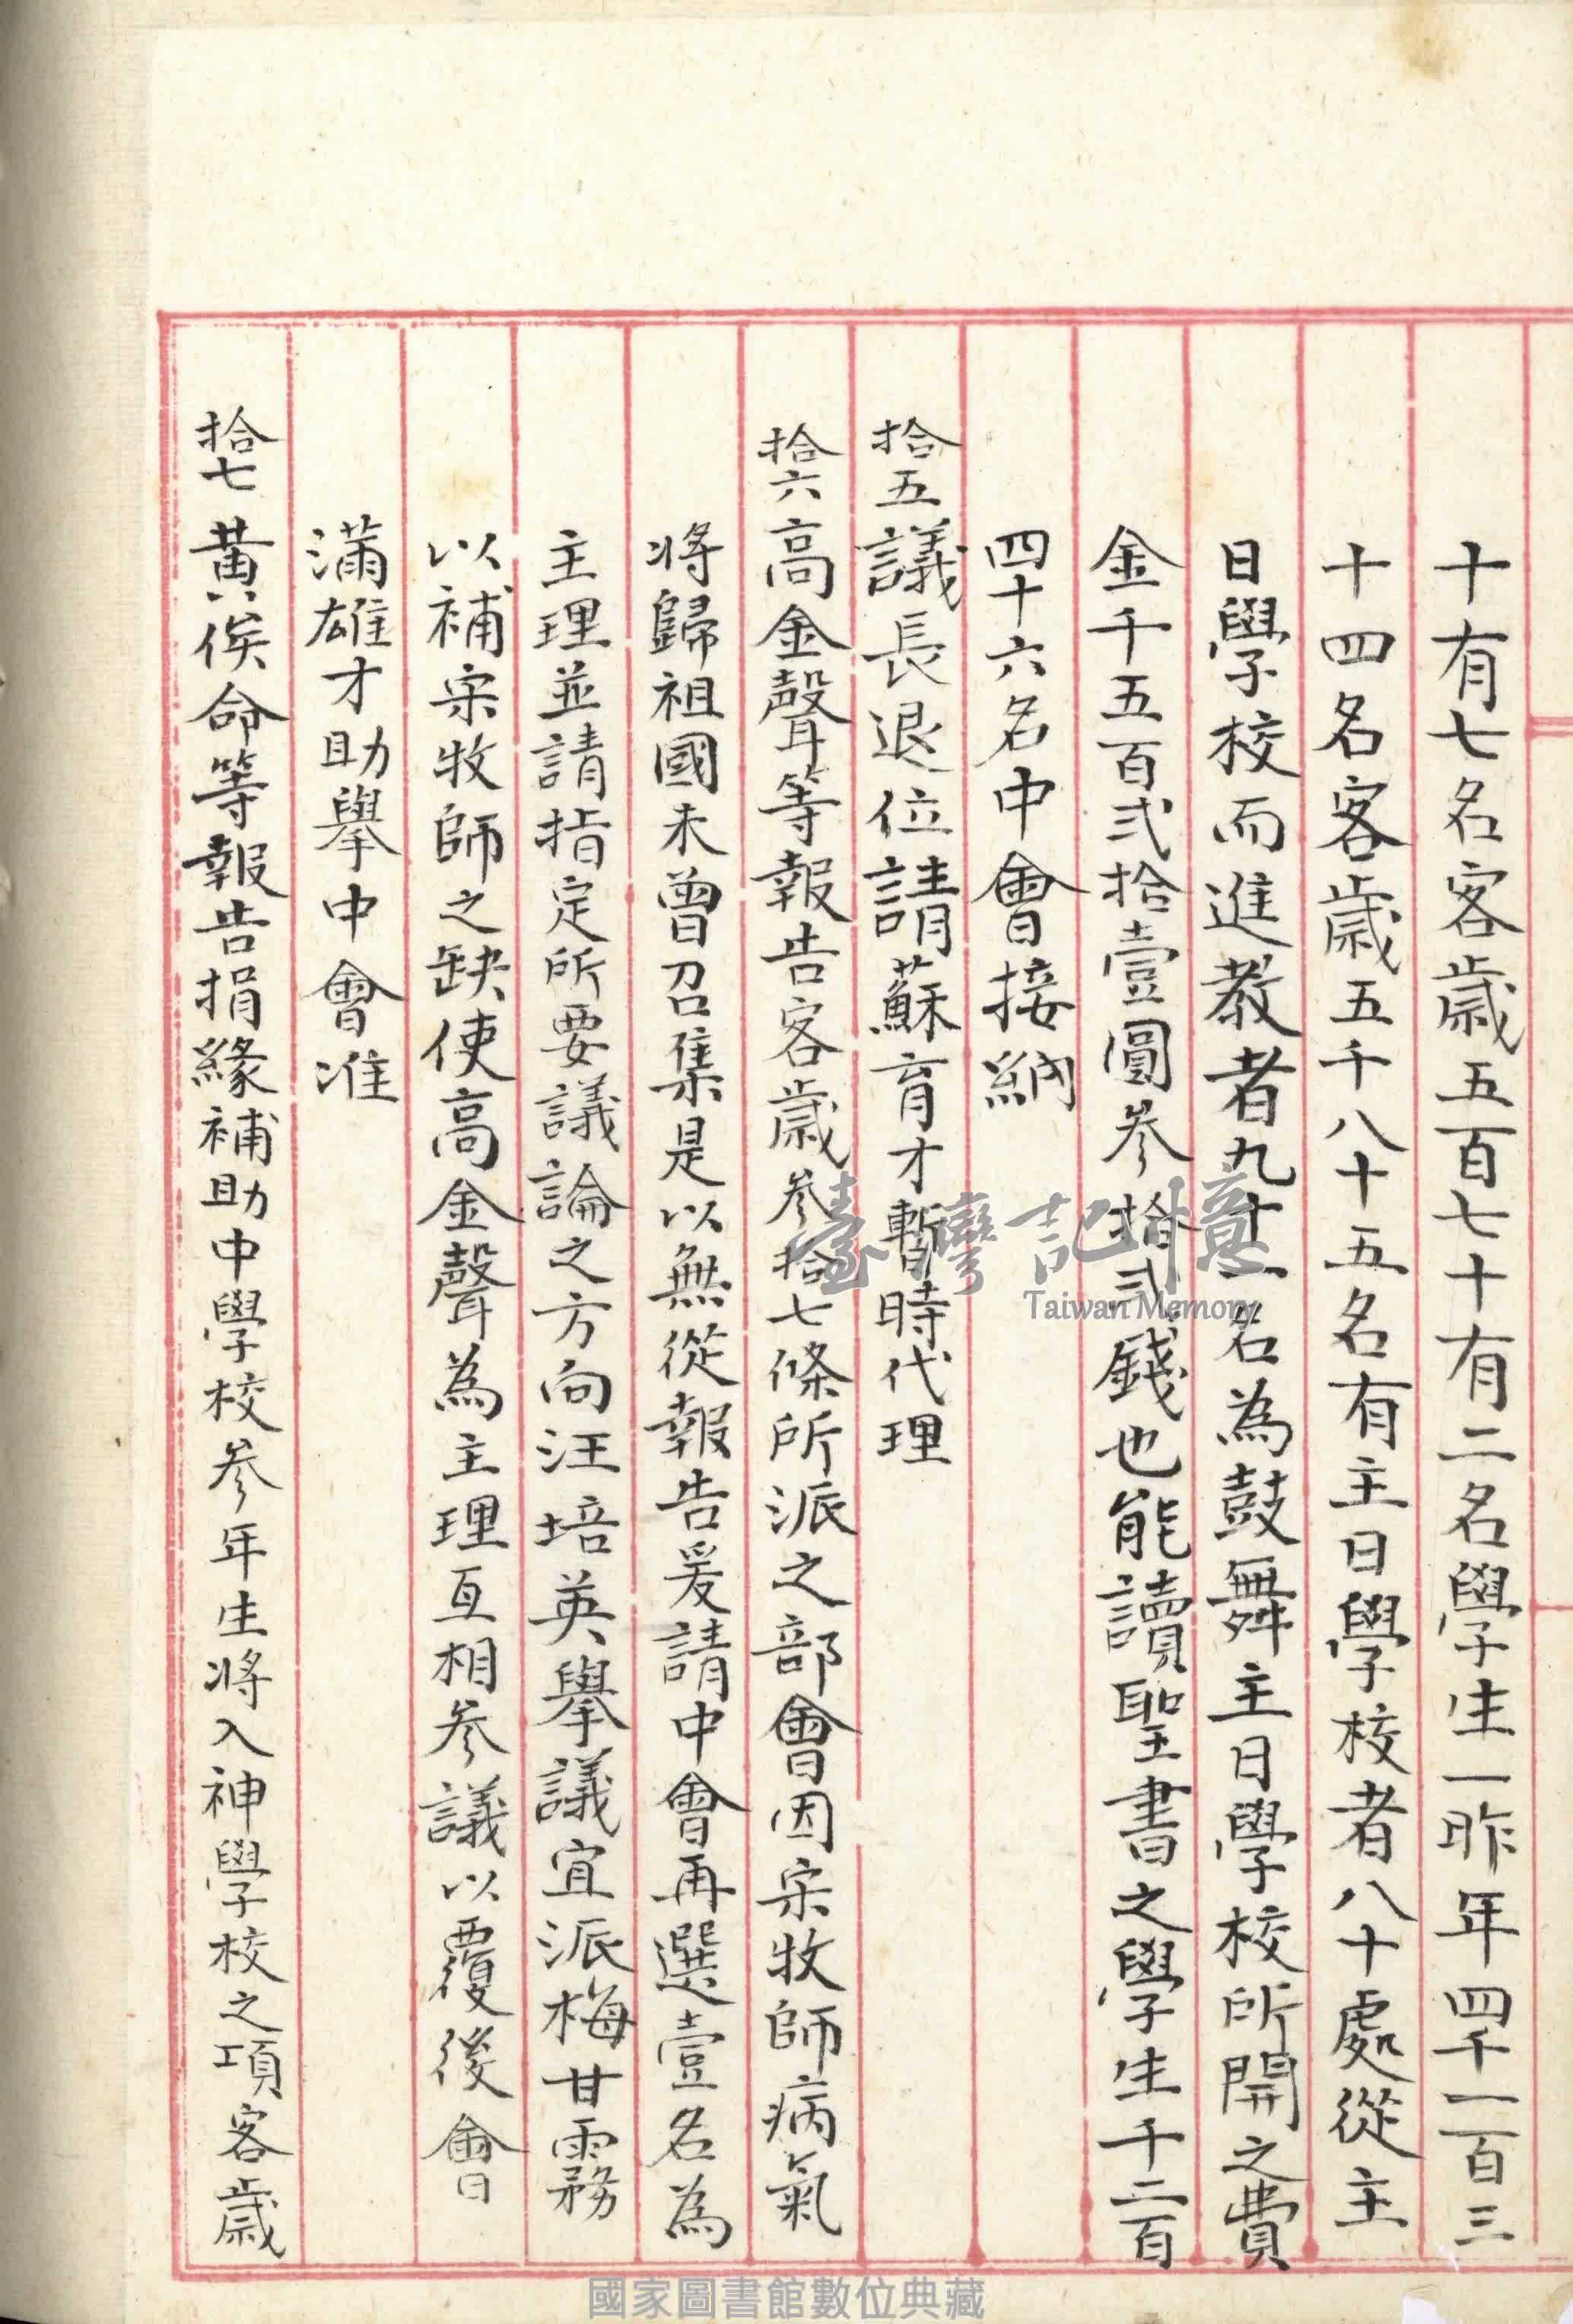 十有七名客歲五百七十有二名學生一昨年四千一百三
十四名客歲五千八十五名有主日學校者八十處從主
日學校而進教者九十一名為鼓舞主日學校所開之費
金千五百弍拾壹圓參拾弍錢也能讀聖書之學生千二百
四十六名中會接納
拾五議長退位請蘇育才暫時代理
拾六高金聲等報告客歲參拾七條所派之部會因宋牧師病氣
將歸祖國未曾召集是以無從報告爰請中會再選壹名為
主理並請指定所要議論之方向汪培英舉議宜派梅甘霧
以補宋牧師之缺使高金聲為主理互相參議以覆後會
滿雄才助舉中會准
拾七黃俟命等報告捐緣補助中學校參年生將入神學校之項客歲
臺灣記憶
Taiwan Memory
國家圖書館數位典藏